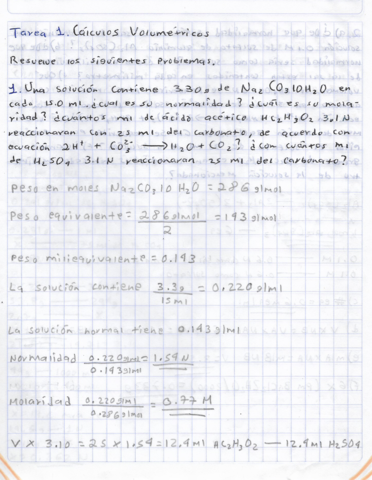 Tarea 1. Cálculos Volumétricos
Resuelve los siguientes problemas.
1. Una solución contiene 3.30g de Na2CO310H2O en
cada 15.0 ml. ¿cuál es su normalidad? ¿cuál es su mola-
ridad? ¿cuántos ml de ácido acético HC2H3O2 3.1N
reaccionaran con 25 ml del carbonato, de acuerdo con
ecuación 2H+ + CO3= → H2O + CO2? ¿con cuántos ml
de H2SO4 3.1N reaccionaran 25 ml del carbonato?
Peso en moles Na2CO310 H2O = 286 g/mol
Peso equivalente = 286g/mol / 2 = 143 g/mol
Peso miliequivalente = 0.143
La solución contiene 3.3g / 15ml = 0.220 g/ml
La solución normal tiene 0.143 g/ml
Normalidad 0.220g/ml / 0.143g/ml = 1.54 N
Molaridad 0.220g/ml / 0.286g/ml = 0.77 M
V x 3.10 = 25 x 1.54 = 12.4 ml HC2H3O2 — 12.4ml H2SO4